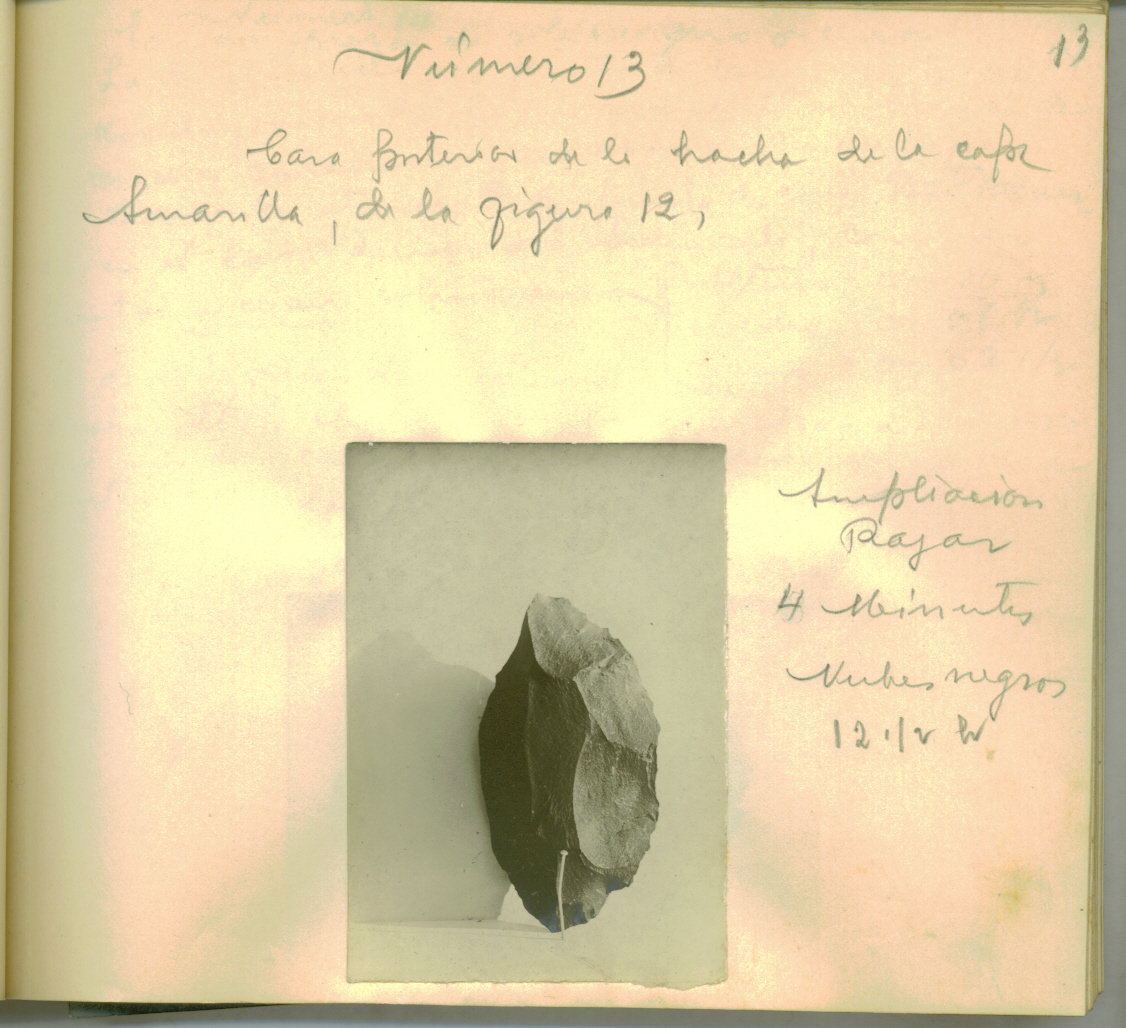 13
Número 13
Cara posterior de la hacha de la capa
Amarilla, de la figura 12,
Ampliación
Rajar
4 Minutos
Nubes negras
12 1/2 h